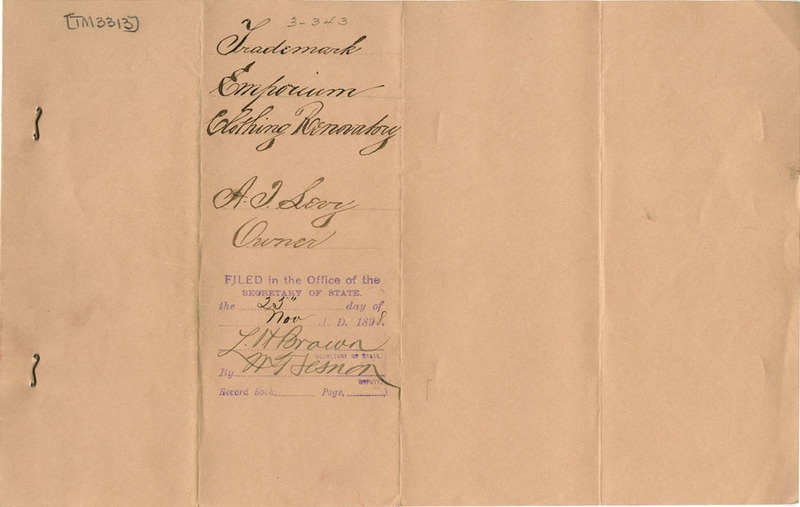 [TM3313]
3-343
Trademark
Emporium
Clothing Renovatory
A. I. Levy
Owner
FILED in the Office of the
SECRETARY OF STATE.
the 25" day of
Nov A. D. 1898.
L. H. Brown
SECRETARY OF STATE.
By
DEPUTY.
Record Book, Page,